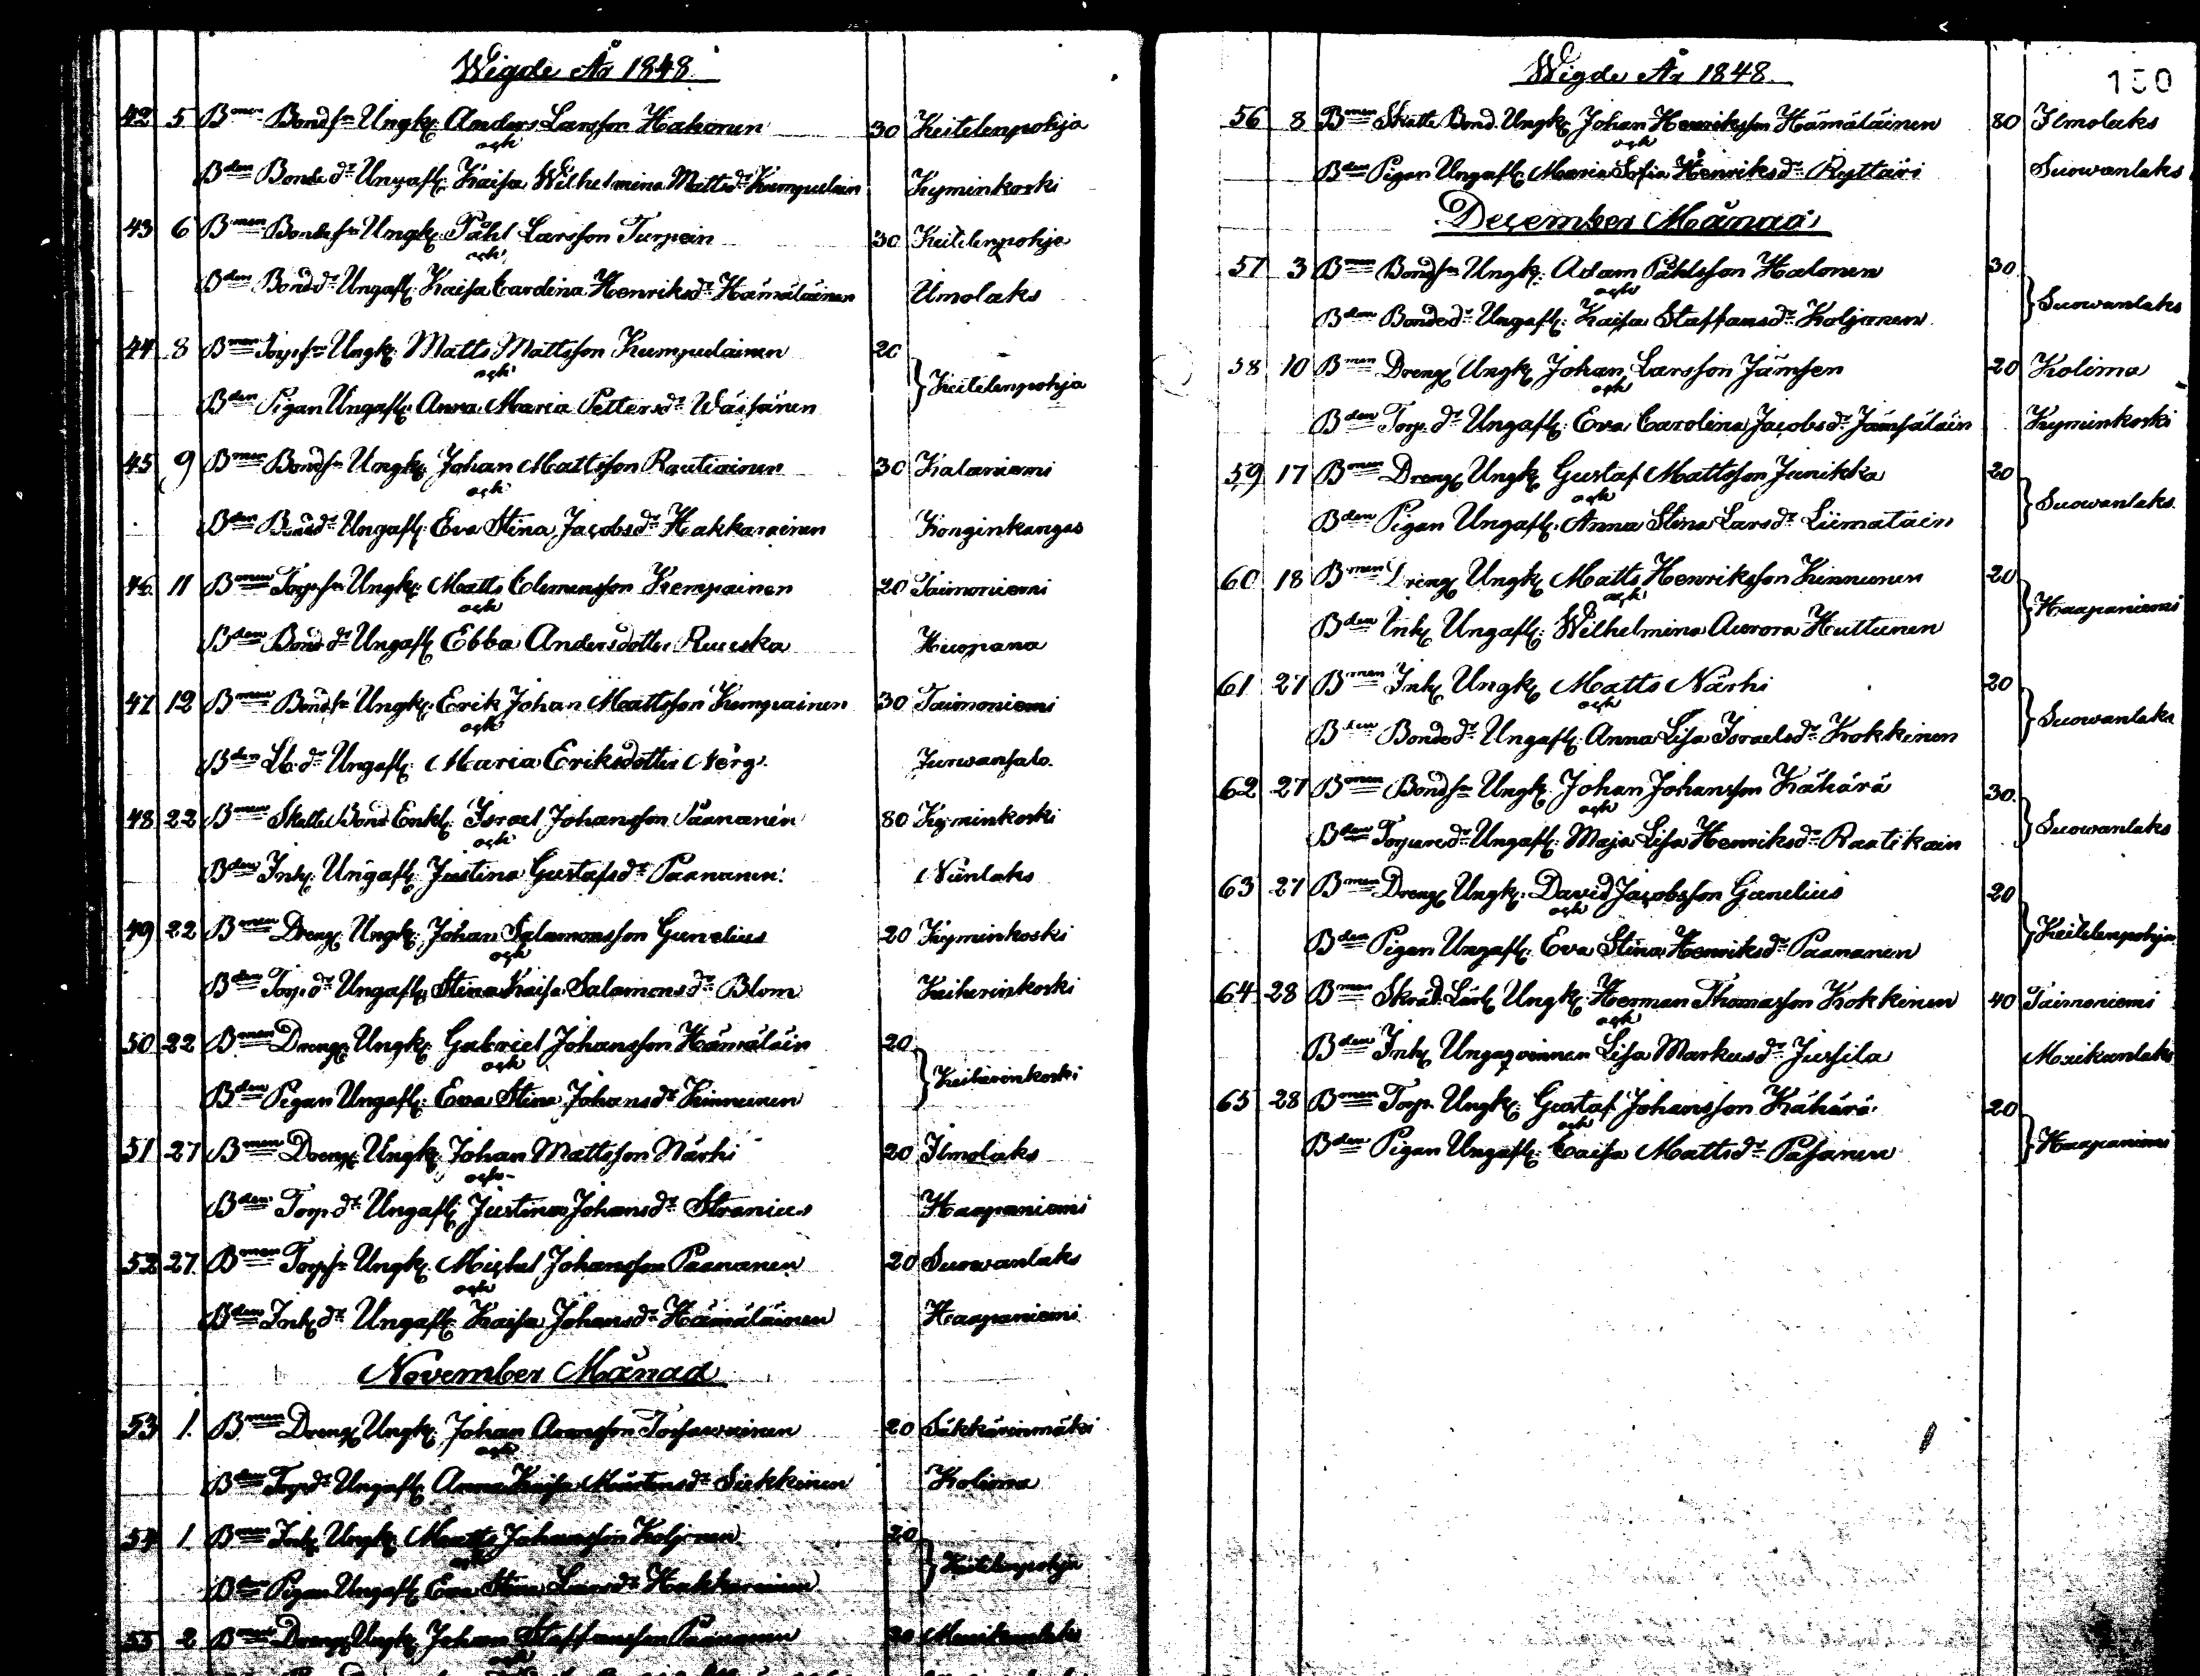 Wigde År 1848.
42 5 Bmen Bondsn Ungk. Anders Larsson Hakonen 30 Keitelenpohja
och
Bden Bonde dr Ungafl. Kaisa Wilhelmina Mattsdr Kumpulain Kyminkoski
43 6 Bmen Bondesn Ungk. Påhl Larsson Turpein 30 Keitelenpohja
och
Bden Bonddr Ungafl. Kaisa Carolina Henriksdr Hämäläinen Ilmolaks
44 8 Bmen Torpsn Ungk. Matts Mattsson Kumpulainen 20
och
} Keitelenpohja
Bden Pigan Ungafl. Anna Maria Pettersdr Wäisänen
45 9 Bmen Bondsn Ungk. Johan Mattsson Rautiainen 30 Kalaniemi
och
Bden Bonddr Ungafl. Eva Stina Jacobsdr Hakkarainen Konginkangas
46 11 Bmen Torpsn Ungk. Matts Clemensson Kempainen 20 Taimoniemi
och
Bden Bonddr Ungafl. Ebba Andersdotter Ruuska Huopana
47 12 Bmen Bondsn Ungk. Erik Johan Mattsson Kumpuainen 30 Taimoniemi
och
Bden Lb. dr Ungafl. Maria Eriksdotter Nerg. Jurwansalo.
48 22 Bmen Skatte Bond Enkl. Israel Johansson Paananen 80 Kyminkoski
och
Bden Inh. Ungafl. Justina Gustafsdr Paananen. Niinlaks
49 22 Bmen Dreng. Ungk. Johan Salamonsson Gunelius 20 Kyminkoski
och
Bden Torp. dr Ungafl. Stina Kaisa Salamonsdr Blom Keiherinkoski
50 22 Bmen Dreng. Ungk. Gabriel Johansson Hämäläin 20
och
} Keiherinkoski
Bden Pigan Ungafl. Eva Stina Johansdr Kinnunen
51 27 Bmen Dreng Ungk. Johan Mattsson Närhi 20 Ilmolaks
och
Bden Torp. dr Ungafl. Justina Johansdr Stranius Haapaniemi
52 27. Bmen Torpsn Ungk. Michel Johansson Paananen 20 Suowanlaks
och
Bden Inh. dr Ungafl. Kaisa Johansdr Hämäläinen Haapaniemi
November Månad
53 1. Bmen Dreng Ungk. Johan Aronsson 20 Säkkärinmäki
och
Bden Torpdr Ungafl. Anna Kaisa Mårtensdr Siekkinen Kolima
54 1 Bmen Inh. Ungk. Matts Johansson Koljonen 20
och
} Keitelenpohja
Bden Pigan Ungafl. Eva Stina Larsdr Hakkarainen
55 2 Bmen Dreng Ungk. Johan Staffansson Paananen 20 Muikunlaks
och
Wigde År 1848.
150
56 8 Bmen Skatte Bond. Ungk. Johan Henriksson Hämäläinen 80 Ilmolaks
och
Bden Pigan Ungafl. Maria Sofia Henriksdr Ryttäri Suowanlaks
December Månad
57 3 Bmen Bondsn Ungk. Adam Påhlsson Halonen 30
och
} Suowanlaks
Bden Bondedr Ungafl. Kaisa Staffansdr Koljonen
58 10 Bmen Dreng Ungk. Johan Larsson Jämsen 20 Kolima
och
Bden Torp. dr Ungafl. Eva Carolina Jacobsdr Jämsäläin Kyminkoski
59 17 Bmen Dreng Ungk. Gustaf Mattsson Junikka 20
och
} Suowanlaks.
Bden Pigan Ungafl. Anna Stina Larsdr Liimatain
60 18 Bmen Dreng Ungk. Matts Henriksson Kinnunen 20
och
} Haapaniemi
Bden Inh. Ungafl. Wilhelmina Aurora Huttunen
61 27 Bmen Inh. Ungk. Matts Närhi 20
och
} Suowanlaks
Bden Bondedr Ungafl. Anna Lisa Israelsdr Krokkinen
62 27 Bmen Bondsn Ungk. Johan Johansson Kähärä 30.
och
} Suowanlaks
Bden Torparedr Ungafl. Maja Lisa Henriksdr Raatikain
63 27 Bmen Dreng Ungk. David Jacobsson Gunelius 20
och
} Keitelenpohja
Bden Pigan Ungafl. Eva Stina Henriksdr Paananen
64 28 Bmen Skräd. Lärl. Ungk. Herman Thomasson Krokkinen 40 Taimoniemi
och
Bden Inh. Ungaqvinnan Lisa Markusdr Jussila Muikunlaks
65 28 Bmen Torp. Ungk. Gustaf Johansson Kähärä. 20
och
} Haapaniemi
Bden Pigan Ungafl. Caisa Mattsdr Pasanen